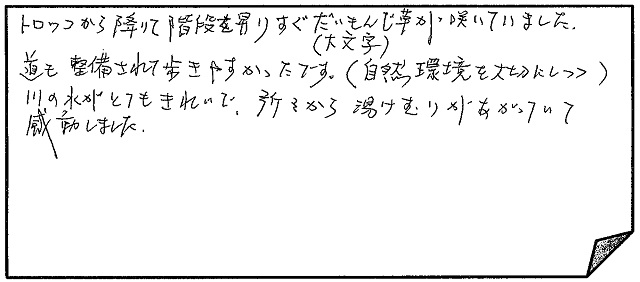 トロッコから降りて階段を昇りすぐだいもんじ草が咲いていました。
(大文字)
道も整備されて歩きやすかったです。(自然環境を大切にしつつ)
川の水がとてもきれいで、所々から湯けむりがあがっていて
感動しました。